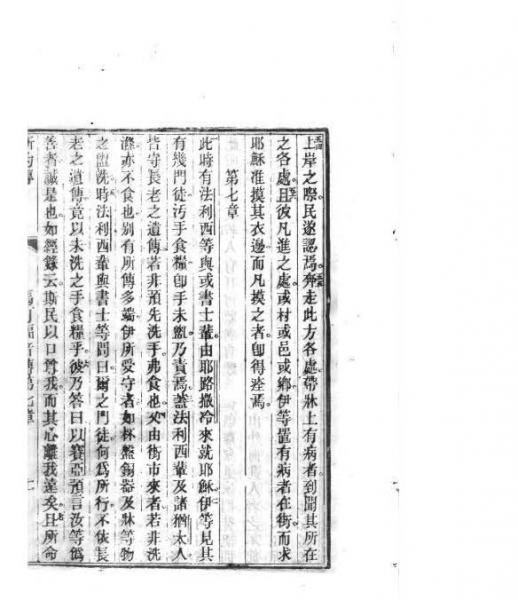 上岸之際民遂認焉奔走此方各處帶牀上有病者到聞其所在
之各處且彼凡進之處或村或邑或鄉伊等置有病者在街而求
耶穌准摸其衣邊而凡摸之者卽得痊焉。
第七章
此時有法利西等與或書士輩由耶路撒冷來就耶穌伊等見其
有幾門徒汚手食糧卽手未盥乃責焉蓋法利西輩及諸猶太人
皆守長老之遺傳若非預先洗手弗食也又由街市來者若非洗
滌亦不食也別有所傳多端伊所愛守者如杯盤錫器及牀等物
之盥洗時法利西輩與書士等問曰爾之門徒何爲所行不依長
老之遺傳竟以未洗之手食糧乎彼乃答曰以賽亞預言汝等僞
善者誠是也如經錄云斯民以口我而其心離我遠矣且所命
福音傳第七章